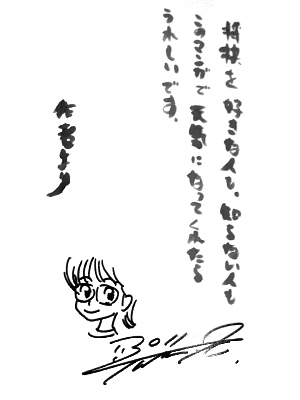 将棋を好きな人も、知らない人も
このマンガで元気になってくれたら
うれしいです。
作者より